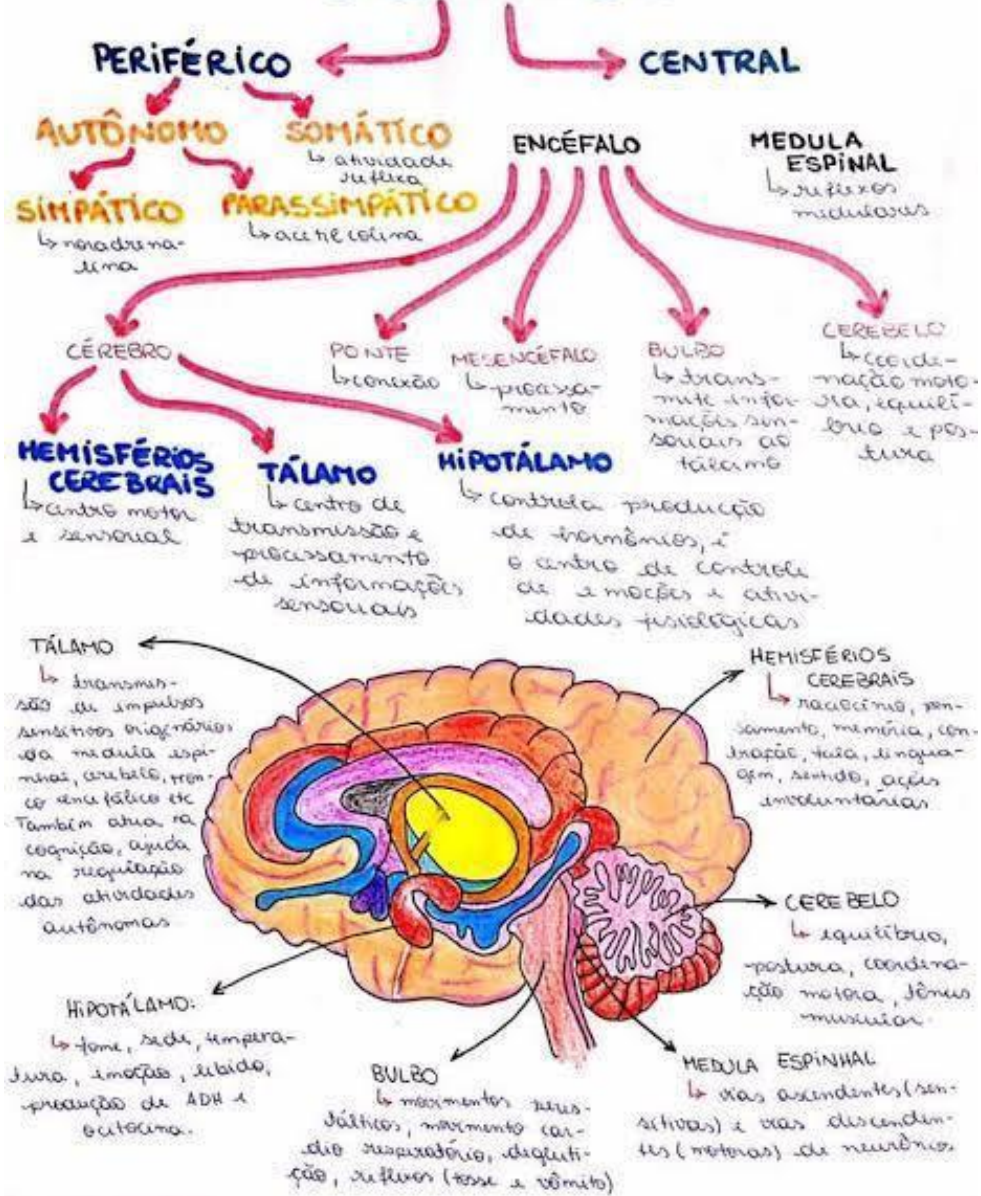 PERIFÉRICO
CENTRAL
AUTÔNOMO
SOMÁTICO
↳ atividade
reflexa
SIMPÁTICO
↳ noradrena-
lina
PARASSIMPÁTICO
↳ acetilcolina
ENCÉFALO
MEDULA
ESPINAL
↳ reflexos
medulares
CÉREBRO
PONTE
↳ conexão
MESENCÉFALO
↳ processa-
mento
BULBO
↳ trans-
mite infor-
mações sen-
soriais ao
tálamo
CEREBELO
↳ coorde-
nação moto-
ra, equilí-
brio e pos-
tura
HEMISFÉRIOS
CEREBRAIS
↳ centro motor
e sensorial
TÁLAMO
↳ centro de
transmissão e
processamento
de informações
sensoriais
HIPOTÁLAMO
↳ controla produção
de hormônios, é
o centro de controle
de emoções e ativi-
dades fisiológicas
TÁLAMO
↳ transmis-
são de impulsos
sensitivos originários
da medula espi-
nhal, cerebelo, tron-
co encefálico etc
Também atua na
cognição, ajuda
na regulação
das atividades
autônomas
HEMISFÉRIOS
CEREBRAIS
↳ raciocínio, pen-
samento, memória, con-
tração, fala, lingua-
gem, sentido, ações
involuntárias
CEREBELO
↳ equilíbrio,
postura, coordena-
ção motora, tônus
muscular.
HIPOTÁLAMO:
↳ fome, sede, tempera-
tura, emoção, libido,
produção de ADH e
ocitocina.
BULBO
↳ movimentos peris-
tálticos, movimento car-
dio respiratório, degluti-
ção, reflexos (tosse e vômito)
MEDULA ESPINHAL
↳ vias ascendentes (sen-
sitivas) e vias descenden-
tes (motoras) de neurônios